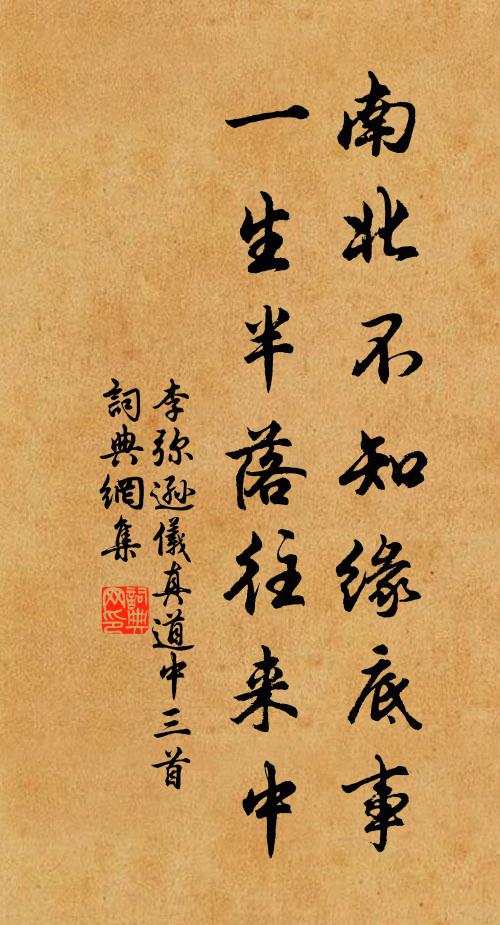 南北不知缘底事
一生半落往来中
李弥逊儀真道中三首
詞典網集
詞典
网印